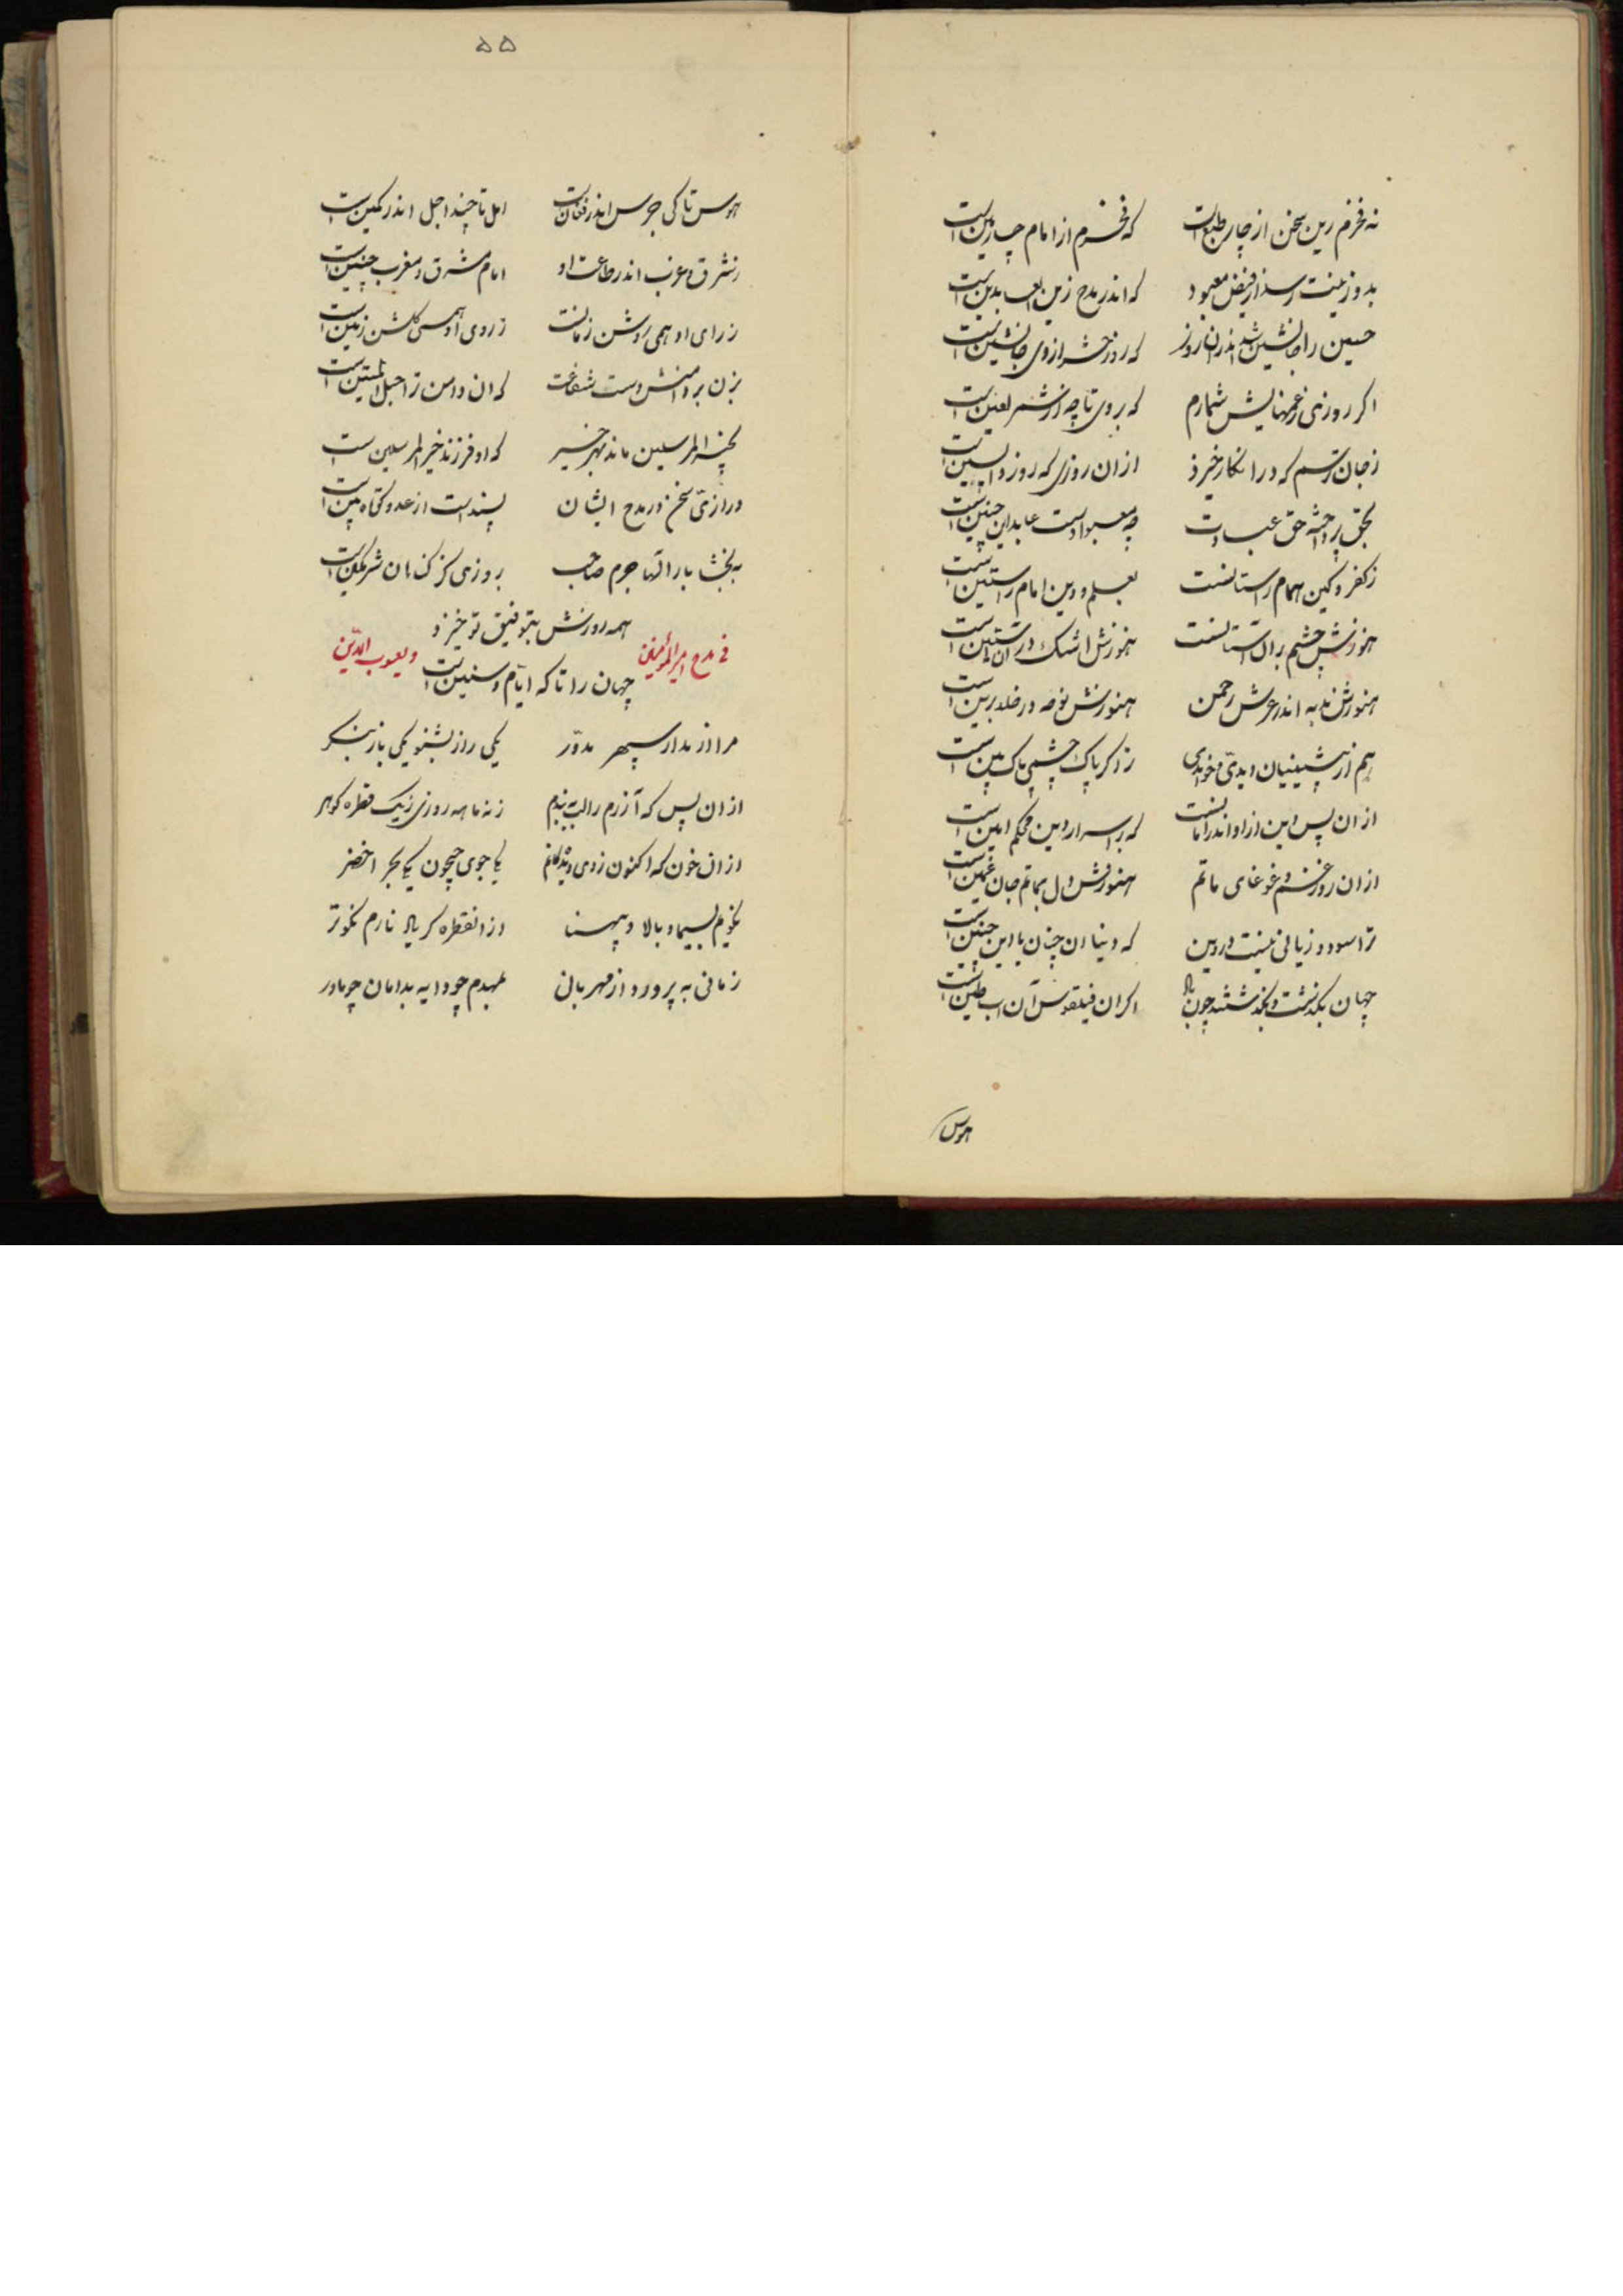 نه فخرم زین سخن از چار طبع است که فخرم از امام چارمین است
بدو زینت رسد از فیض معبود که اندر مدح زین العابدین است
حسین را جانشین شد اندران روز که روز حشر از وی جانشین است
اگر روزی ز غمهایش شمارم که بر وی تا چه از شمر لعین است
ز جان ترسم که در انکار خیزد از ان روزی که روز واپسین است
بحق پرداخته حق عبادت چه معبودست عابد این چنین است
ز کفر و کین امام راستانست بعلم و دین امام راستین است
هنوزش چشم بر آل هنوزش اشک در آستین است
هنوزش ندبه اندر عرش رحمن هنوزش نوحه در خلد برین است
هم از پیشینیان دیدی و خواندی ز اگر پاک چشمی پاک بین است
از ان پس دین ازاو اندر امانست که بر اسرار دین محکم امین است
از ان روز غم و غوغای ماتم هنوزش دل بماتم جان غمین است
ترا سود و زیانی نیست در دین که دنیا ان چنان یا این چنین است
جهان بگذشت و بگذشتند چون باد اگر ان فیلقوس آن آب طین است
هوس
۵۵
هوس تا کی جرس اندر فغان است امل تا چند اجل اندر کمین است
ز شرق و غرب اندر طاعت او امام مشرق و مغرب چنین است
ز رای او همی روشن زمانست ز روی او همی گلشن زمین است
بزن بر دامنش دست شفاعت که ان دامن ترا حبل المتین است
بخیر المرسلین ماند بهر خیر که او فرزند خیر المرسلین ست
درازیّ سخن در مدح ایشان پسند است از عدو کوتاه بین است
به بخشا بار الها جرم صاحب بروزی کز گناهان شرمگین است
همه روزش بتوفیق تو خیزد
فی مدح امیر المؤمنین و یعسوب الدّین
جهان را تا که ایّام و سنین است
مرا از مدار سپهر مدوّر یکی راز بشنو یکی باز بنگر
از ان پس که آزرم را لب به بندم ز نه ماهه روزی ز یک قطره گوهر
از ان خون که اکنون ز دیدگانم یکی جوی جیحون یکی بحر اخضر
نگویم بسیما و بالا و پهنا از انقطره گر یاد نارم نکوتر
زمانی به پرورد از مهربانی بمهدم چو دایه بدامان چو مادر